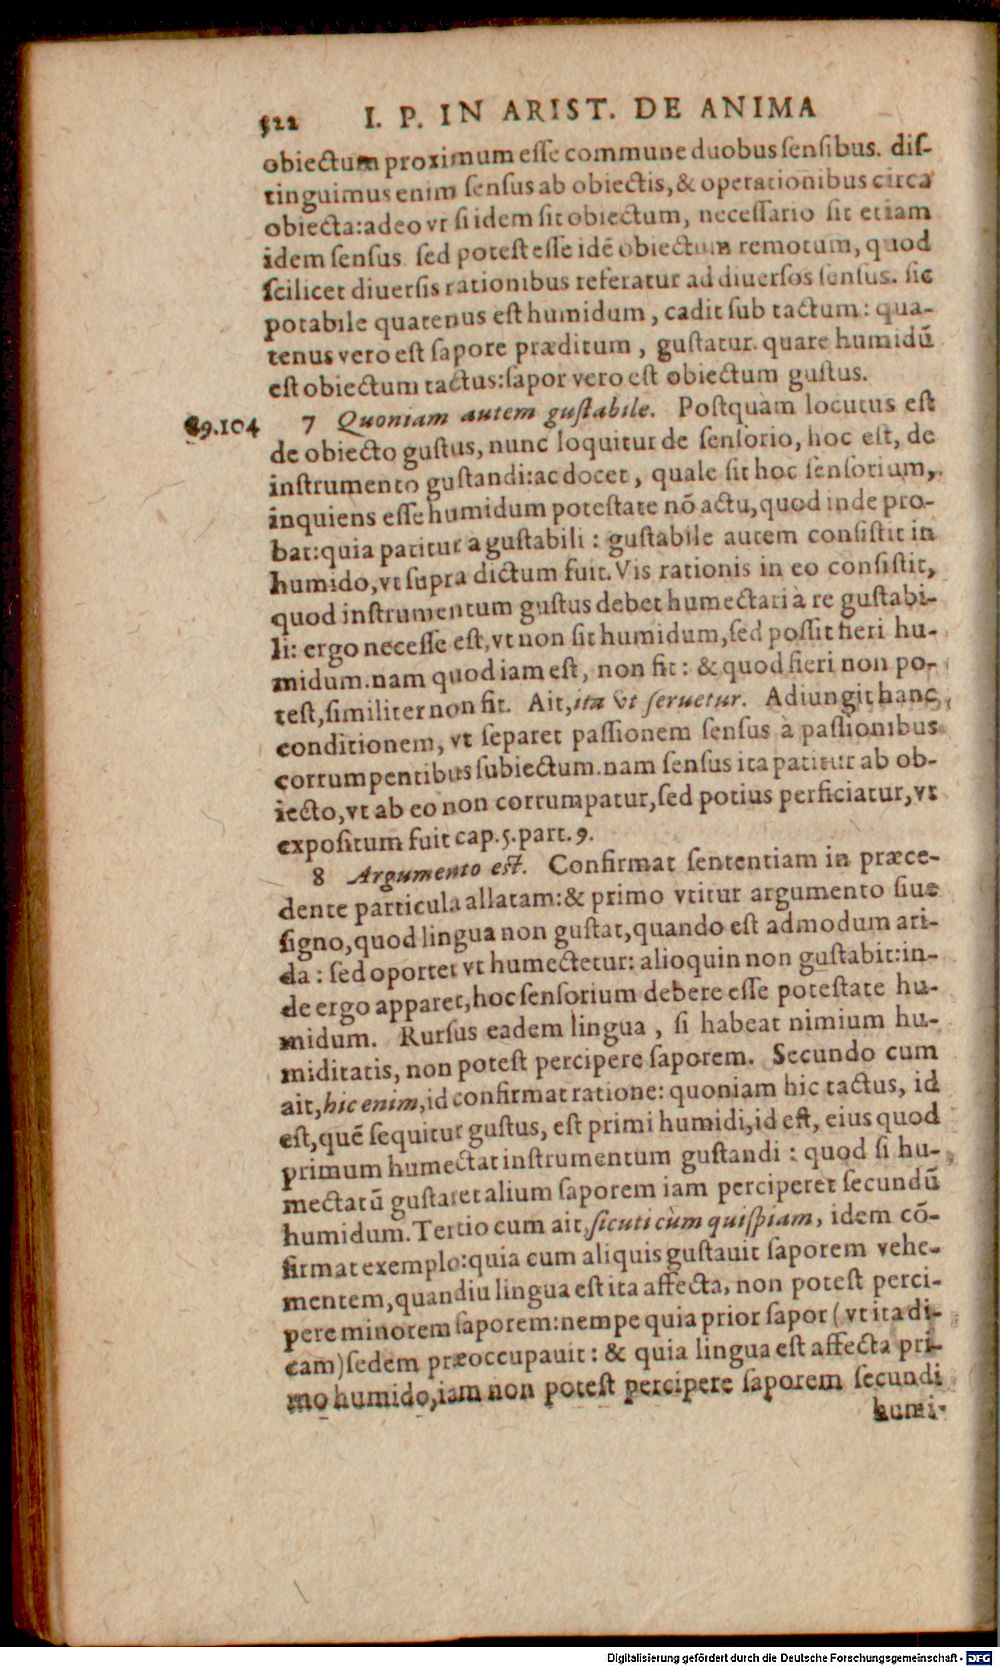 522 I. P. IN ARIST. DE ANIMA
obiectum proximum esse commune duobus sensibus. dis-
tinguimus enim sensus ab obiectis, & operationibus circa
obiecta: adeo vt si idem sit obiectum, necessario sit etiam
idem sensus. sed potest esse idē obiectum remotum, quod
scilicet diuersis rationibus referatur ad diuersos sensus. sic
potabile quatenus est humidum, cadit sub tactum: qua-
tenus vero est sapore præditum, gustatur. quare humidū
est obiectum tactus: sapor vero est obiectum gustus.
89.104 7 Quoniam autem gustabile. Postquàm locutus est
de obiecto gustus, nunc loquitur de sensorio, hoc est, de
instrumento gustandi: ac docet, quale sit hoc sensorium,
inquiens esse humidum potestate nō actu, quod inde pro-
bat: quia patitur à gustabili: gustabile autem consistit in
humido, vt supra dictum fuit. Vis rationis in eo consistit,
quod instrumentum gustus debet humectari à re gustabi-
li: ergo necesse est, vt non sit humidum, sed possit fieri hu-
midum. nam quod iam est, non fit: & quod fieri non po-
test, similiter non fit. Ait, ita vt seruetur. Adiungit hanc
conditionem, vt separet passionem sensus à passionibus
corrumpentibus subiectum. nam sensus ita patitur ab ob-
iecto, vt ab eo non corrumpatur, sed potius perficiatur, vt
expositum fuit cap. 5. part. 9.
8 Argumento est. Confirmat sententiam in præce-
dente particula allatam: & primo vtitur argumento siue
signo, quod lingua non gustat, quando est admodum ari-
da: sed oportet vt humectetur: alioquin non gustabit: in-
de ergo apparet, hoc sensorium debere esse potestate hu-
midum. Rursus eadem lingua, si habeat nimium hu-
miditatis, non potest percipere saporem. Secundo cum
ait, hic enim, id confirmat ratione: quoniam hic tactus, id
est, quē sequitur gustus, est primi humidi, id est, eius quod
primum humectat instrumentum gustandi: quod si hu-
mectatū gustaret alium saporem iam perciperet secundū
humidum. Tertio cum ait, sicuti cùm quispiam, idem cō-
firmat exemplo: quia cum aliquis gustauit saporem vehe-
mentem, quandiu lingua est ita affecta, non potest perci-
pere minorem saporem: nempe quia prior sapor (vt ita di-
cam) sedem præoccupauit: & quia lingua est affecta pri-
mo humido, iam non potest percipere saporem secundi
humi-
Digitalisierung gefördert durch die Deutsche Forschungsgemeinschaft - DFG